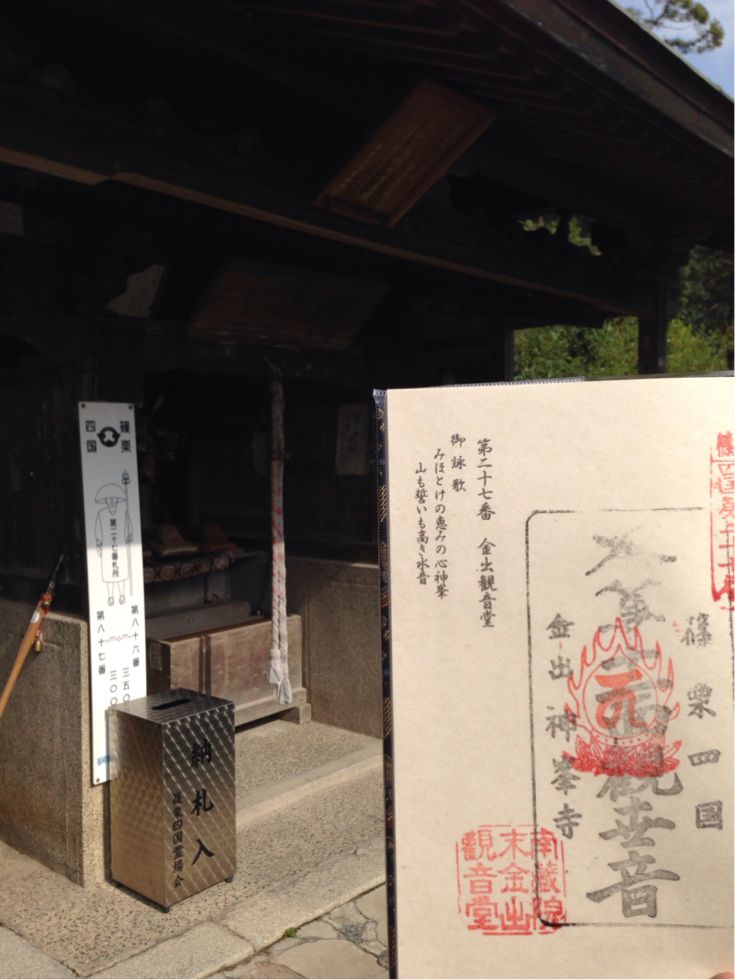 篠栗
四国
第二十七番札所
第八十六番 三五〇
第八十七番 三〇〇
納札入
篠栗四国霊場会
第二十七番 金出観音堂
御詠歌
みほとけの恵みの心神峯
山も誓いも高き水音
篠栗四国
観世音
金出神峯寺
南蔵院
末金出
観音堂